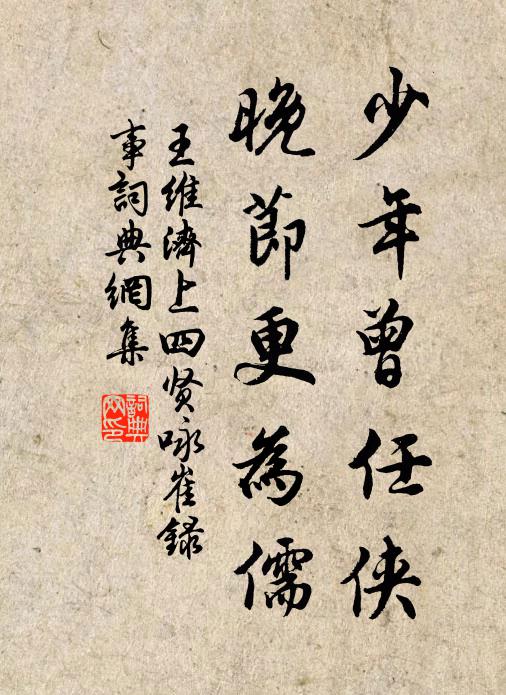 少年曾任侠
晚節更為儒
王維濟上四贤咏崔録
事詞典網集
詞典網印